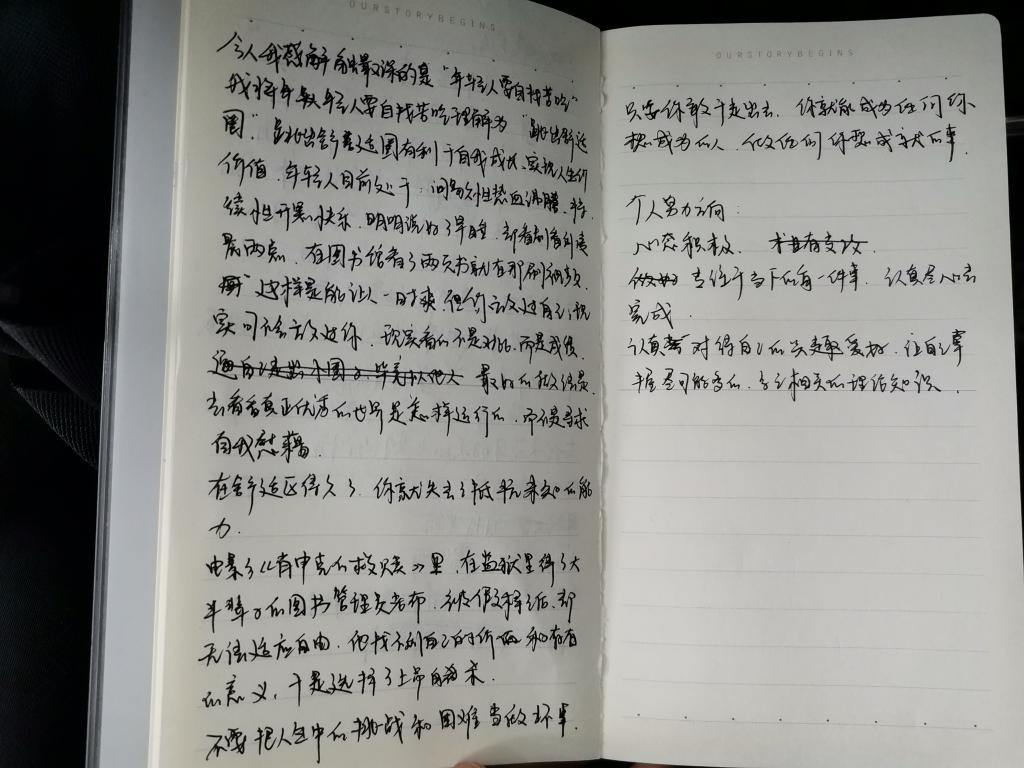 OURSTORYBEGINS
令人我感解触最深的是“年轻人要自找苦吃”
我将年轻人要自找苦吃理解为“跳出舒适
圈”。跳出舒适圈有利于自我成长、实现人生价
价值，年轻人目前处于：间歇性热血沸腾，持
续性开黑快乐，明明说好了早睡，却看剧看到凌
晨两点，在图书馆看了两页书就
这样是能让人一时爽，但你放过自己，现
实可不会放过你，现实看的不是对比，而是成绩，
最好的做法是
去看看真正优秀的世界是怎样运行的，而不是寻求
自我慰藉。
在舒适区待久了，你就失去了抵抗未知的能
力。
电影《肖申克的救赎》里，在监狱里待了大
半辈子的图书管理员老布，被假释之后，却
无法适应自由，他找不到自己的价值和存在
的意义，于是选择了上吊自杀。
不要把人生中的挑战和困难当做坏事，
OURSTORYBEGINS
只要你敢于走出去，你就能成为任何你
想成为的人，做任何你想成就的事。
个人努力方向：
心态积极，
专注于当下的每一件事，认真尽心去
完成。
认真对待自己的兴趣爱好，让自己掌
握尽可能多的，与之相关的理论知识。